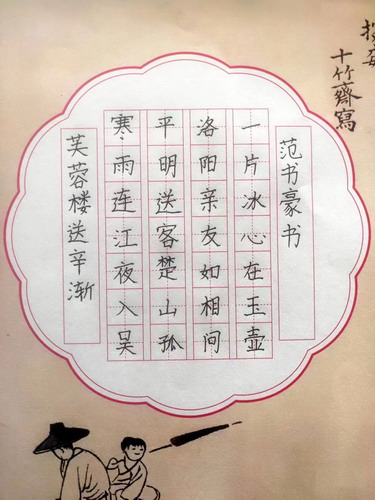 芙蓉楼送辛渐
寒雨连江夜入吴
平明送客楚山孤
洛阳亲友如相问
一片冰心在玉壶
范书豪书
十竹齋寫